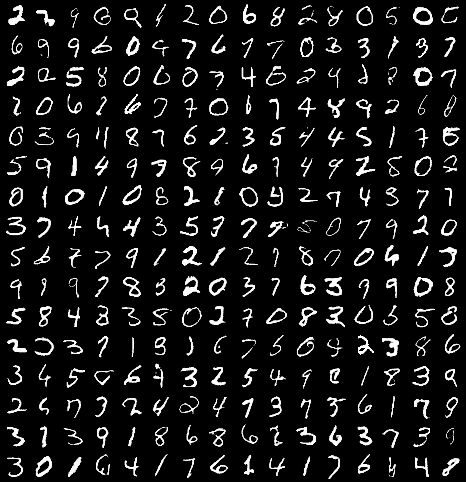 2 7 9 6 9 1 2 0 6 8 2 8 0 5 0 5
6 9 9 6 0 9 7 6 7 7 0 3 3 1 3 7
2 2 5 8 0 0 0 7 4 5 2 9 2 8 0 7
2 0 6 2 6 7 7 0 1 7 4 8 9 2 6 8
0 3 9 4 8 7 6 2 3 5 4 4 5 1 7 5
5 9 1 4 9 7 8 9 6 7 4 9 2 8 0 2
0 1 0 1 0 8 2 1 0 9 2 7 4 3 7 7
3 7 4 4 4 3 5 3 7 7 5 0 7 9 2 0
5 6 7 7 9 1 2 1 2 1 8 7 0 6 1 3
9 9 9 7 8 3 2 0 3 7 6 3 9 9 0 8
5 8 4 8 3 8 0 2 7 0 8 3 0 5 5 8
2 0 3 7 1 9 1 6 7 5 0 4 2 3 8 6
3 4 5 0 6 9 3 2 5 4 9 8 1 8 3 9
2 5 7 3 2 4 2 4 7 3 7 5 6 1 7 9
3 1 3 9 1 8 6 8 6 2 3 6 3 7 3 9
3 0 1 6 4 1 7 6 1 4 1 7 6 4 4 8